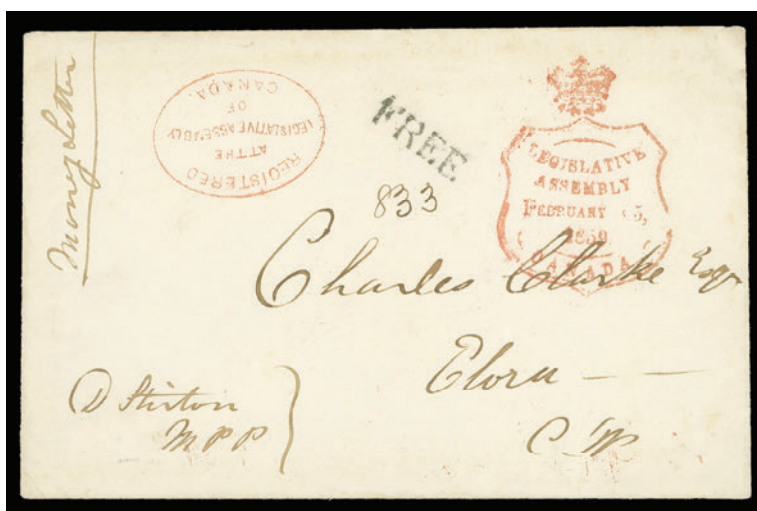 Money Letter
REGISTERED
AT THE
LEGISLATIVE ASSEMBLY
OF
CANADA.
FREE
LEGISLATIVE
ASSEMBLY
FEBRUARY 5,
1859
CANADA
833
Charles Clarke Esqr
Elora
C W
D Stirton
M P P